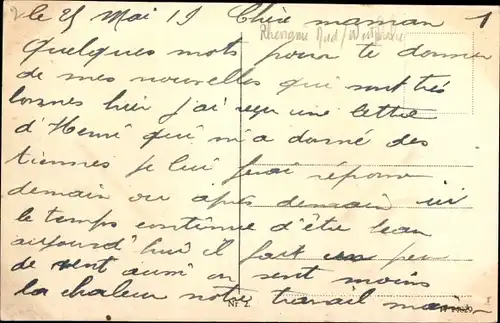 le 25 Mai 19 Chère maman 1
Rhénanie Nord / Westphalie
quelques mots pour te donner
de mes nouvelles qui sont très
bonnes hier j'ai reçu une lettre
d'Henri qui m'a donné des
tiennes je lui ferai réponse
demain ou après demain ici
le temps continue d'être beau
aujourd'hui il fait un peu
de vent aussi on sent moins
la chaleur notre travail main
Nr. 2.